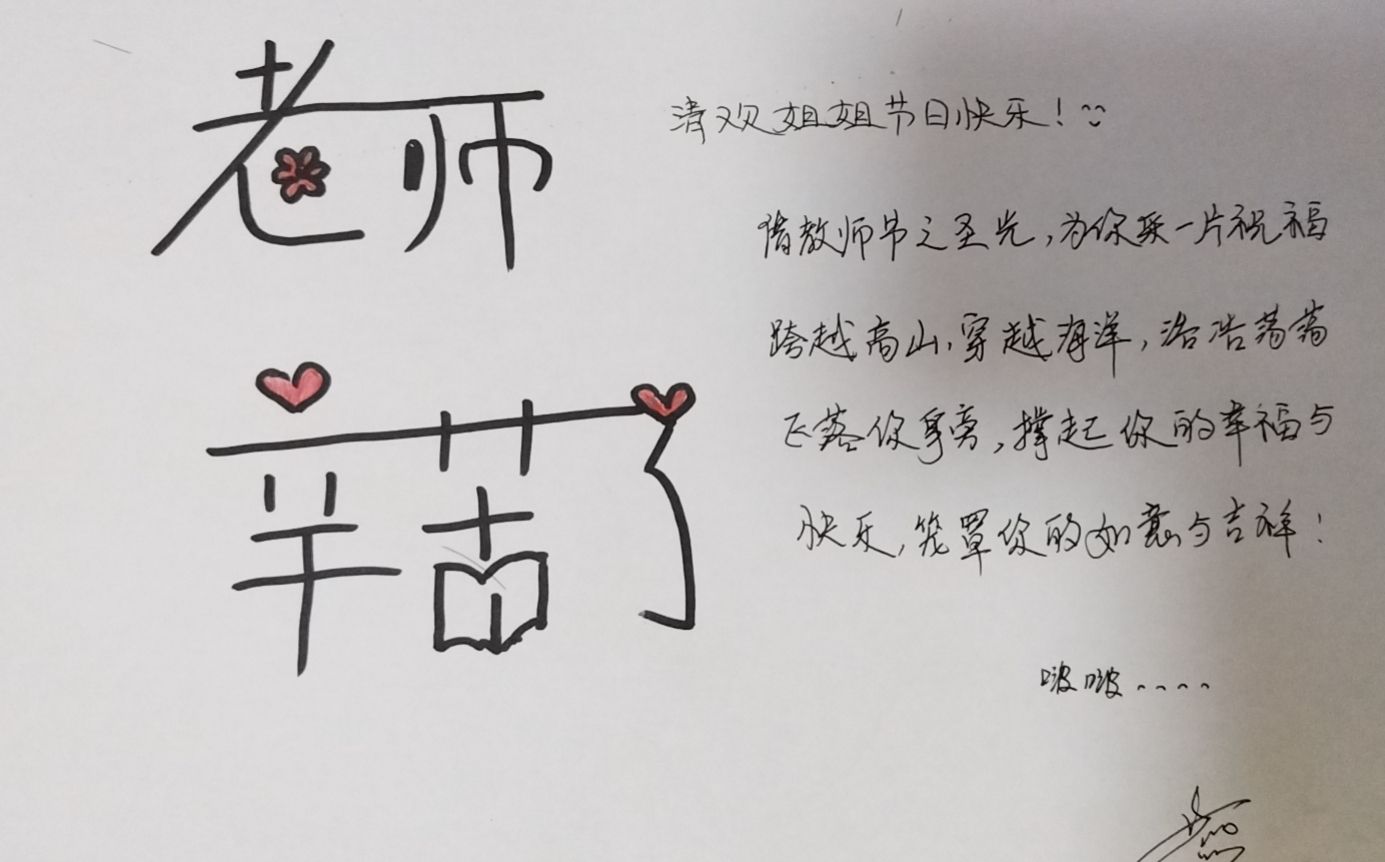 老师
辛苦了
清欢姐姐节日快乐!
借教师节之圣光,为你采一片祝福
跨越高山,穿越海洋,浩浩荡荡
飞落你身旁,撑起你的幸福与
快乐,笼罩你的如意与吉祥!
啵啵....